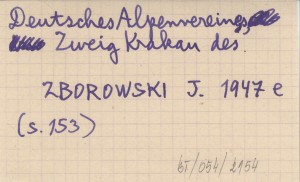 Deutsches Alpenvereines
Zweig Krakau des.
ZBOROWSKI J. 1947 e
(s. 153)
bT/054/2154